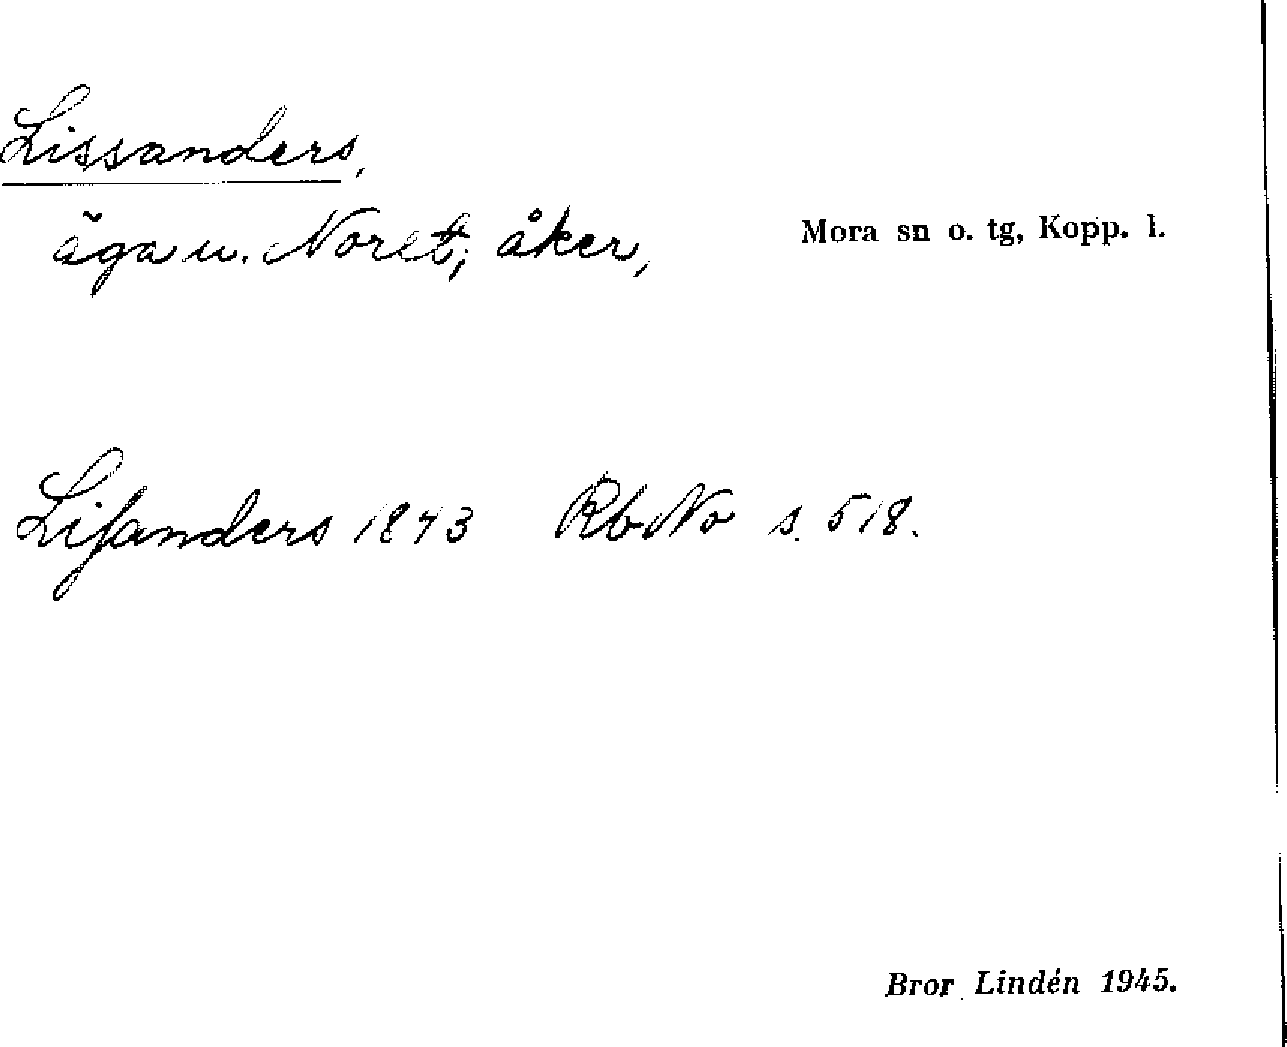 Lissanders,
äga u. Noret; åker,
Mora sn o. tg, Kopp. l.
Lisſanders 1843 RbNo s. 518.
Bror Lindén 1945.